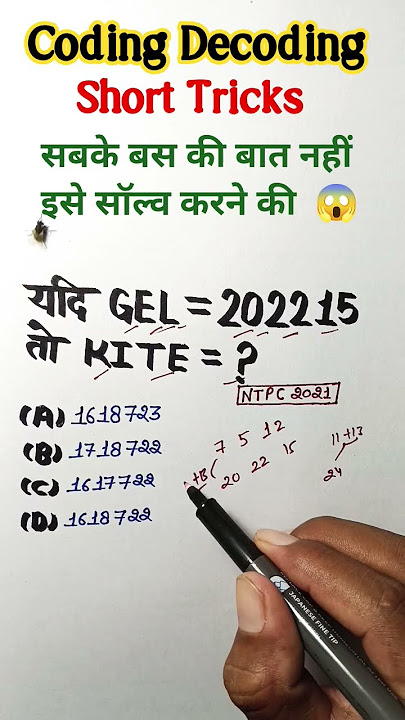 Coding Decoding
Short Tricks
सबके बस की बात नहीं
इसे सॉल्व करने की 😱
यदि GEL = 202215
तो KITE = ?
NTPC 2021
(A) 1618723
(B) 1718722
(C) 1617722
(D) 1618722
7 5 12
20 22 15
+13
11 +13
24
JAPANESE FINE TIP